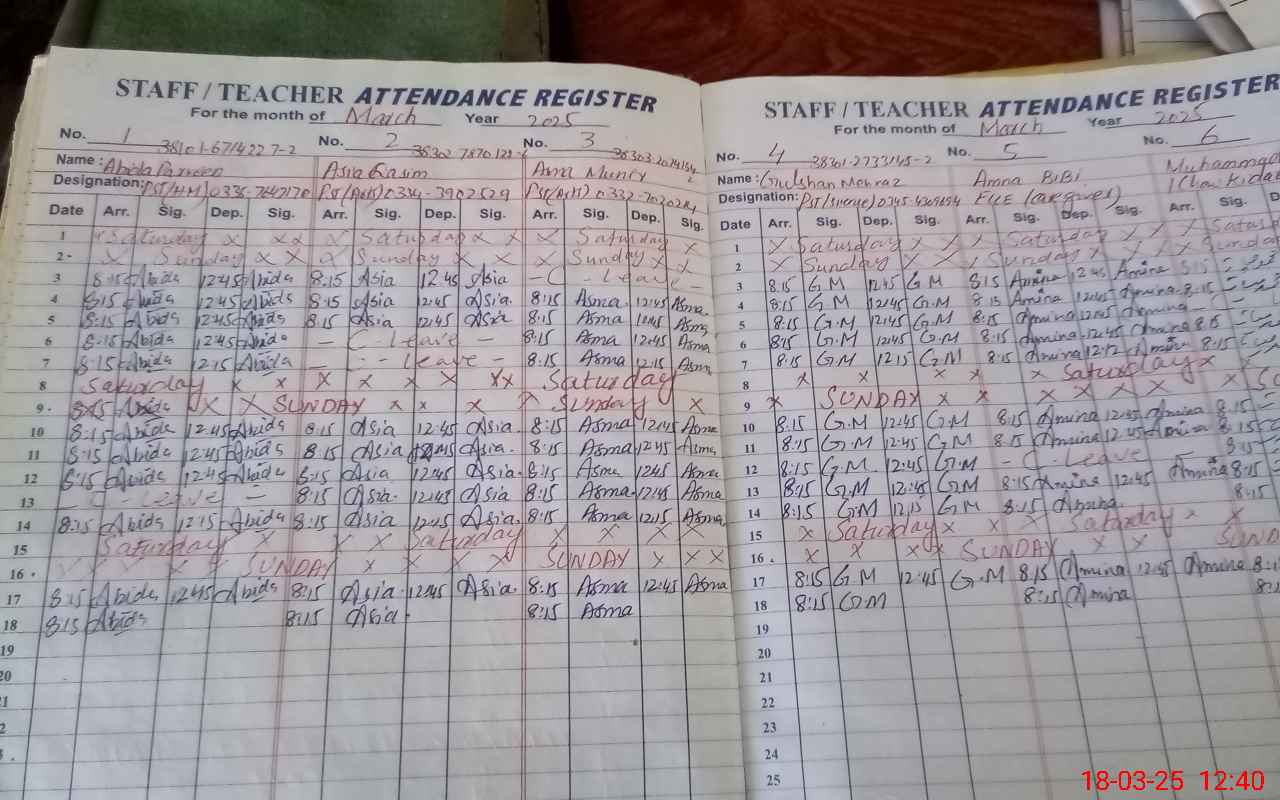 STAFF / TEACHER ATTENDANCE REGISTER
For the month of March Year 2025
No. 1 38101-6714227-2 No. 2 No. 3
Name: Abida Parveen Asia Qasim Asma Munir
Designation: PST(HM) PST(Acts) 0334-3902529 PST(Acts)
Date Arr. Sig. Dep. Sig. Arr. Sig. Dep. Sig. Arr. Sig. Dep. Sig.
1 x Saturday x x x x Saturday x x x Saturday x
2 x Sunday x x x Sunday x x x Sunday x x
3 8:15 Abida 12:45 Abida 8:15 Asia 12:45 Asia - C - Leave -
4 8:15 Abida 12:45 Abida 8:15 Asia 12:45 Asia. 8:15 Asma 12:45 Asma
5 8:15 Abida 12:45 Abida 8:15 Asia 12:45 Asia 8:15 Asma 12:45 Asma
6 8:15 Abida 12:45 Abida - C - Leave - 8:15 Asma 12:45 Asma
7 8:15 Abida 12:15 Abida - C - Leave - 8:15 Asma 12:15 Asma
8 Saturday x x x x x x xx Saturday
9 8:15 Abida x x SUNDAY x x x x Sunday x
10 8:15 Abida 12:45 Abida 8:15 Asia 12:45 Asia. 8:15 Asma 12:45 Asma
11 8:15 Abida 12:45 Abida 8:15 Asia 12:45 Asia. 8:15 Asma 12:45 Asma
12 8:15 Abida 12:45 Abida 8:15 Asia 12:45 Asia. 8:15 Asma 12:45 Asma
13 - C - Leave - 8:15 Asia. 12:45 Asia 8:15 Asma 12:45 Asma
14 8:15 Abida 12:15 Abida 8:15 Asia 12:15 Asia. 8:15 Asma 12:15 Asma
15 Saturday x x x Saturday x x x x
16 x x x x SUNDAY x x x x SUNDAY x x x
17 8:15 Abida 12:45 Abida 8:15 Asia. 12:45 Asia. 8:15 Asma 12:45 Asma
18 8:15 Abida 8:15 Asia 8:15 Asma
19
20
21
STAFF / TEACHER ATTENDANCE REGISTER
For the month of March Year 2025
No. 4 38301-2733145-2 No. 5 No. 6
Name: Gulshan Mehraz Amna BiBi Muhammad
Designation: PST
Date Arr. Sig. Dep. Sig. Arr. Sig. Dep. Sig. Arr. Sig.
1 x Saturday x x x Saturday x x x
2 x Sunday x x x Sunday x x x Sunday
3 8:15 G.M 12:45 G.M 8:15 Amina 12:45 Amina 8:15
4 8:15 G.M 12:45 G.M 8:15 Amina 12:45 Amina 8:15
5 8:15 G.M 12:45 G.M 8:15 Amina 12:45 Amina
6 8:15 G.M 12:45 G.M 8:15 Amina 12:45 Amina 8:15
7 8:15 G.M 12:15 G.M 8:15 Amina 12:12 Amina 8:15
8 x x x x x Saturday x
9 x SUNDAY x x x x x x
10 8:15 G.M 12:45 G.M 8:15 Amina 12:45 Amina 8:15
11 8:15 G.M 12:45 G.M 8:15 Amina 12:45 Amina 8:15
12 8:15 G.M. 12:45 G.M - C - Leave - 8:15
13 8:15 G.M 12:45 G.M 8:15 Amina 12:45 Amina 8:15
14 8:15 G.M 12:15 G.M 8:15 Amina. 8:15
15 x Saturday x x x Saturday x x
16 x x x x SUNDAY x x
17 8:15 G.M 12:45 G.M 8:15 Amina 12:45 Amina
18 8:15 G.M 8:15 Amina
19
20
21
22
23
24
25
18-03-25 12:40